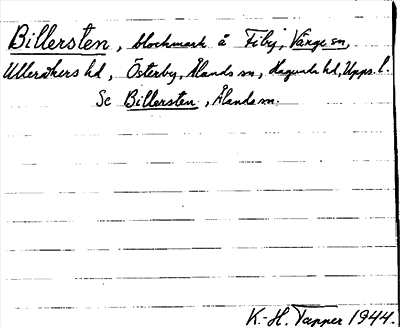 Billersten, blockmark å Fiby, Vänge sn,
Ulleråkers hd, Österby, Ålands sn, Hagunda hd, Upps. l.
Se Billersten, Ålands sn.
K.-H. Tapper 1944.